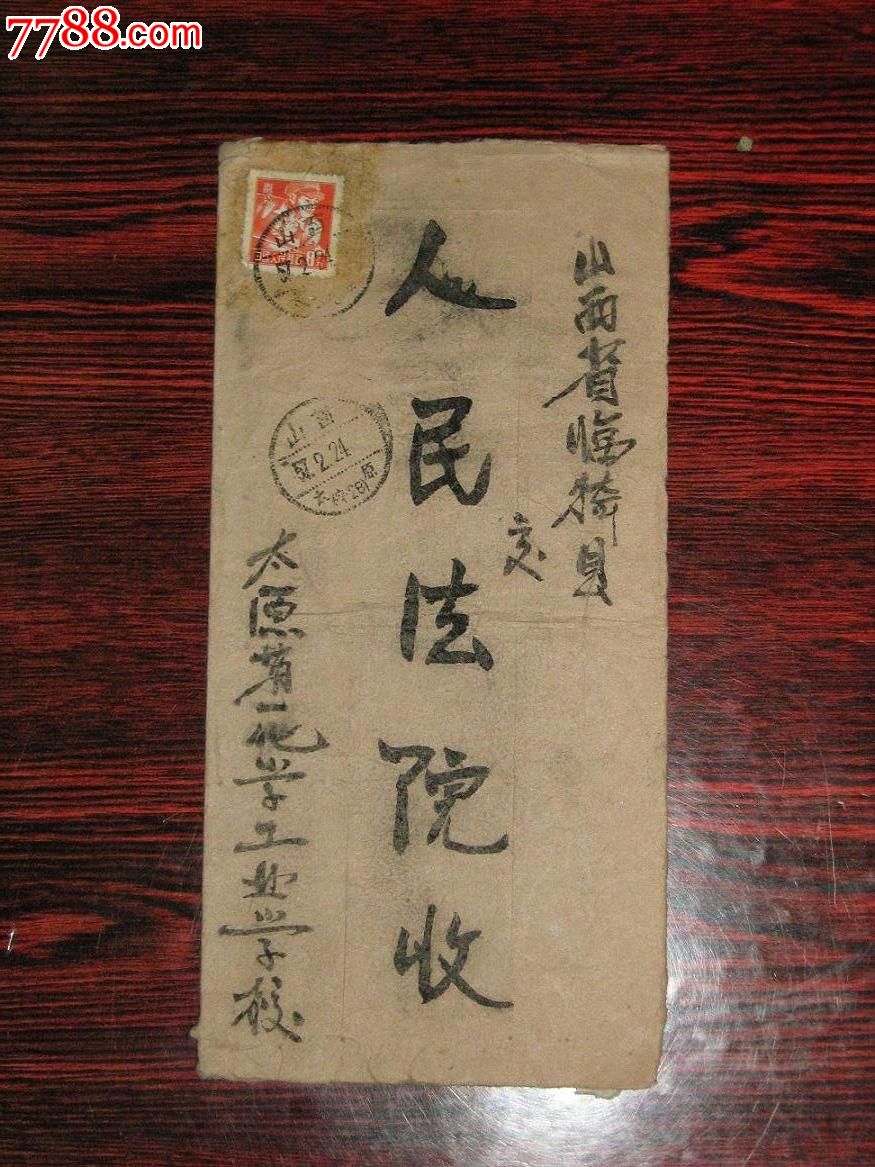 7788.com
山西省临猗县
交
人民法院收
太原第一化学工业学校
山西
57.2.24
太原
山西